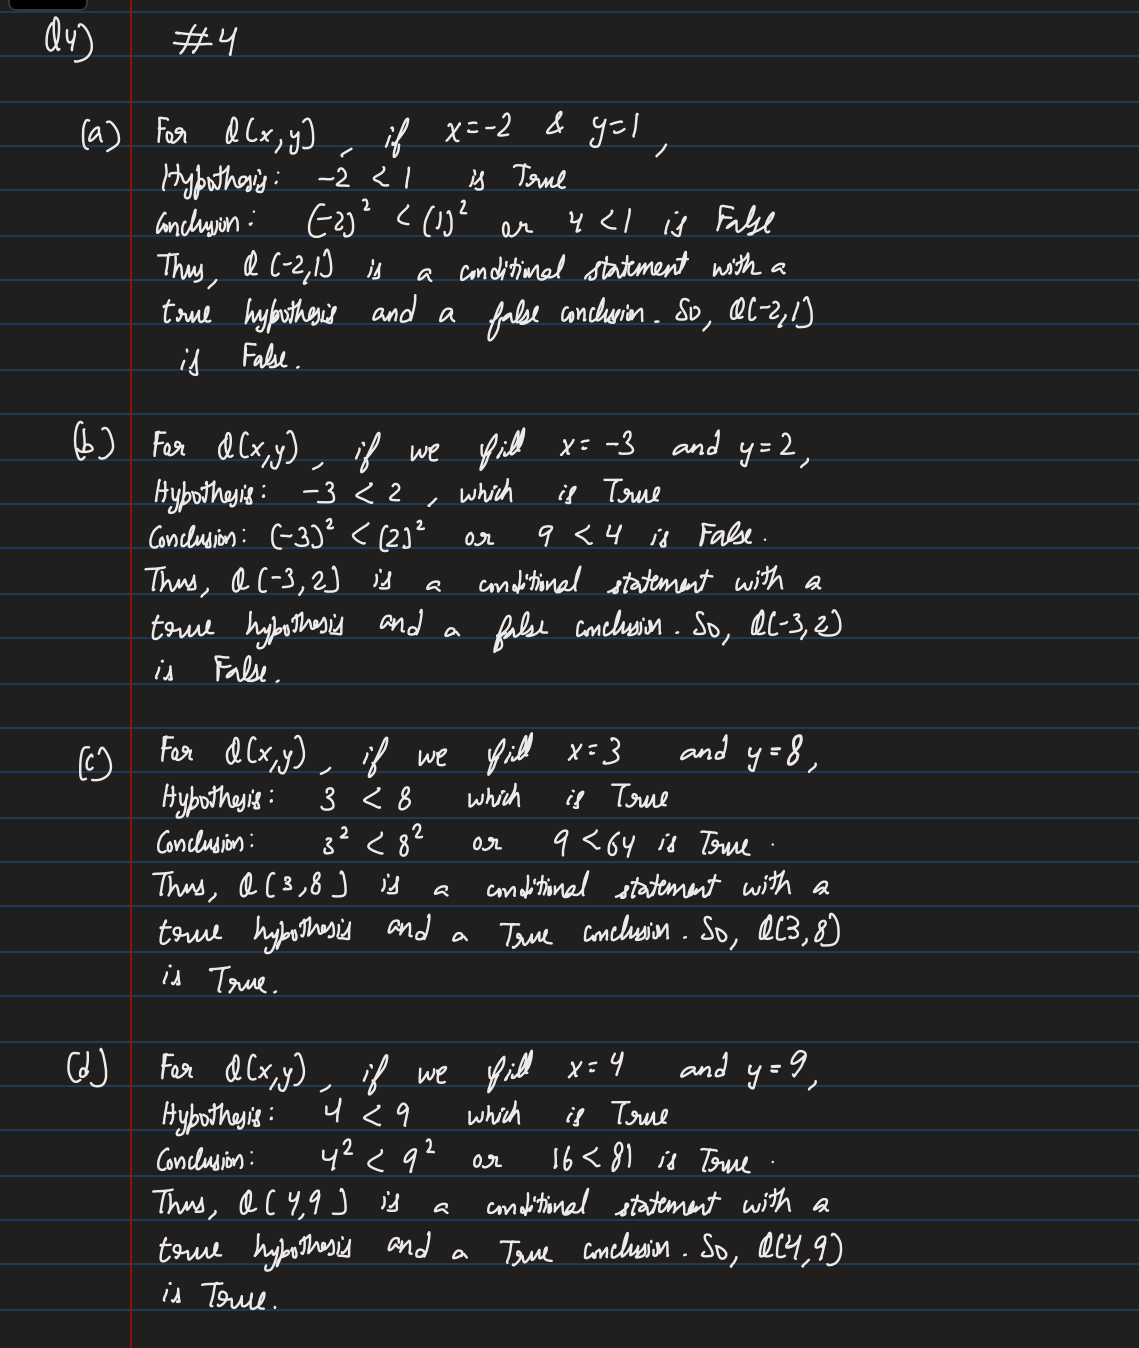 Q4) #4
(a) For Q(x,y), if x=-2 & y=1,
Hypothesis: -2 < 1 is True
Conclusion: (-2)² < (1)² or 4 < 1 is False
Thus, Q(-2,1) is a conditional statement with a
true hypothesis and a false conclusion. So, Q(-2,1)
is False.
(b) For Q(x,y), if we fill x= -3 and y=2,
Hypothesis: -3 < 2, which is True
Conclusion: (-3)² < (2)² or 9 < 4 is False.
Thus, Q(-3,2) is a conditional statement with a
true hypothesis and a false conclusion. So, Q(-3,2)
is False.
(c) For Q(x,y), if we fill x=3 and y=8,
Hypothesis: 3 < 8 which is True
Conclusion: 3² < 8² or 9 < 64 is True.
Thus, Q(3,8) is a conditional statement with a
true hypothesis and a True conclusion. So, Q(3,8)
is True.
(d) For Q(x,y), if we fill x= 4 and y=9,
Hypothesis: 4 < 9 which is True
Conclusion: 4² < 9² or 16 < 81 is True.
Thus, Q(4,9) is a conditional statement with a
true hypothesis and a True conclusion. So, Q(4,9)
is True.